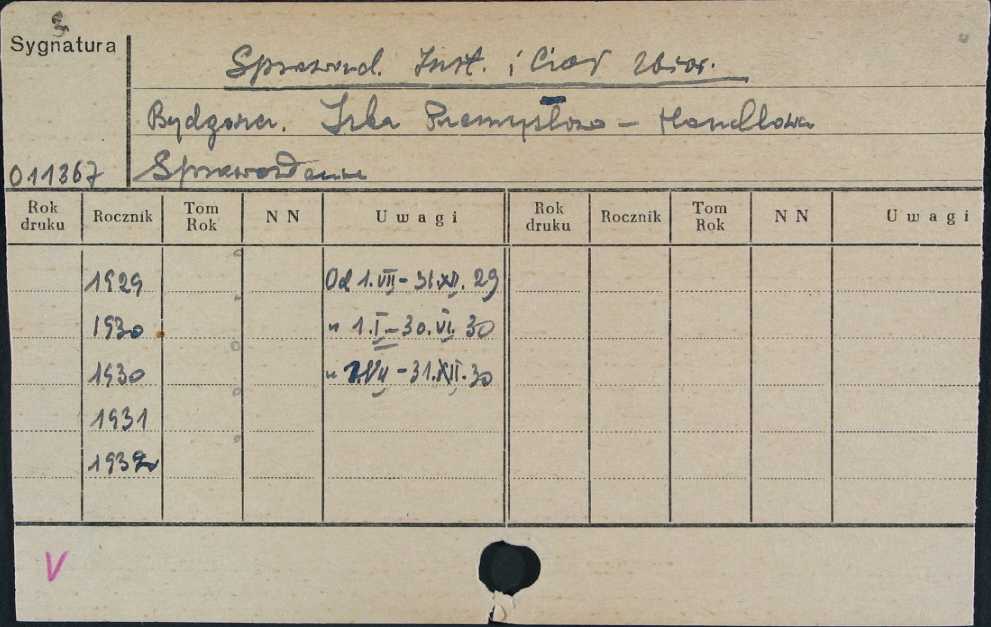 Sygnatura
Sprawozd. Inst. i Ciał Zbior.
Bydgoszcz. Izba Przemysłowo - Handlowa
011367 Sprawozdanie
Rok druku Rocznik Tom Rok N N Uwagi Rok druku Rocznik Tom Rok N N Uwagi
1929 Od 1.VII - 31.XII. 29
1930 " 1.I - 30.VI. 30
1930 " 1.VII - 31.XII. 30
1931
1932
V